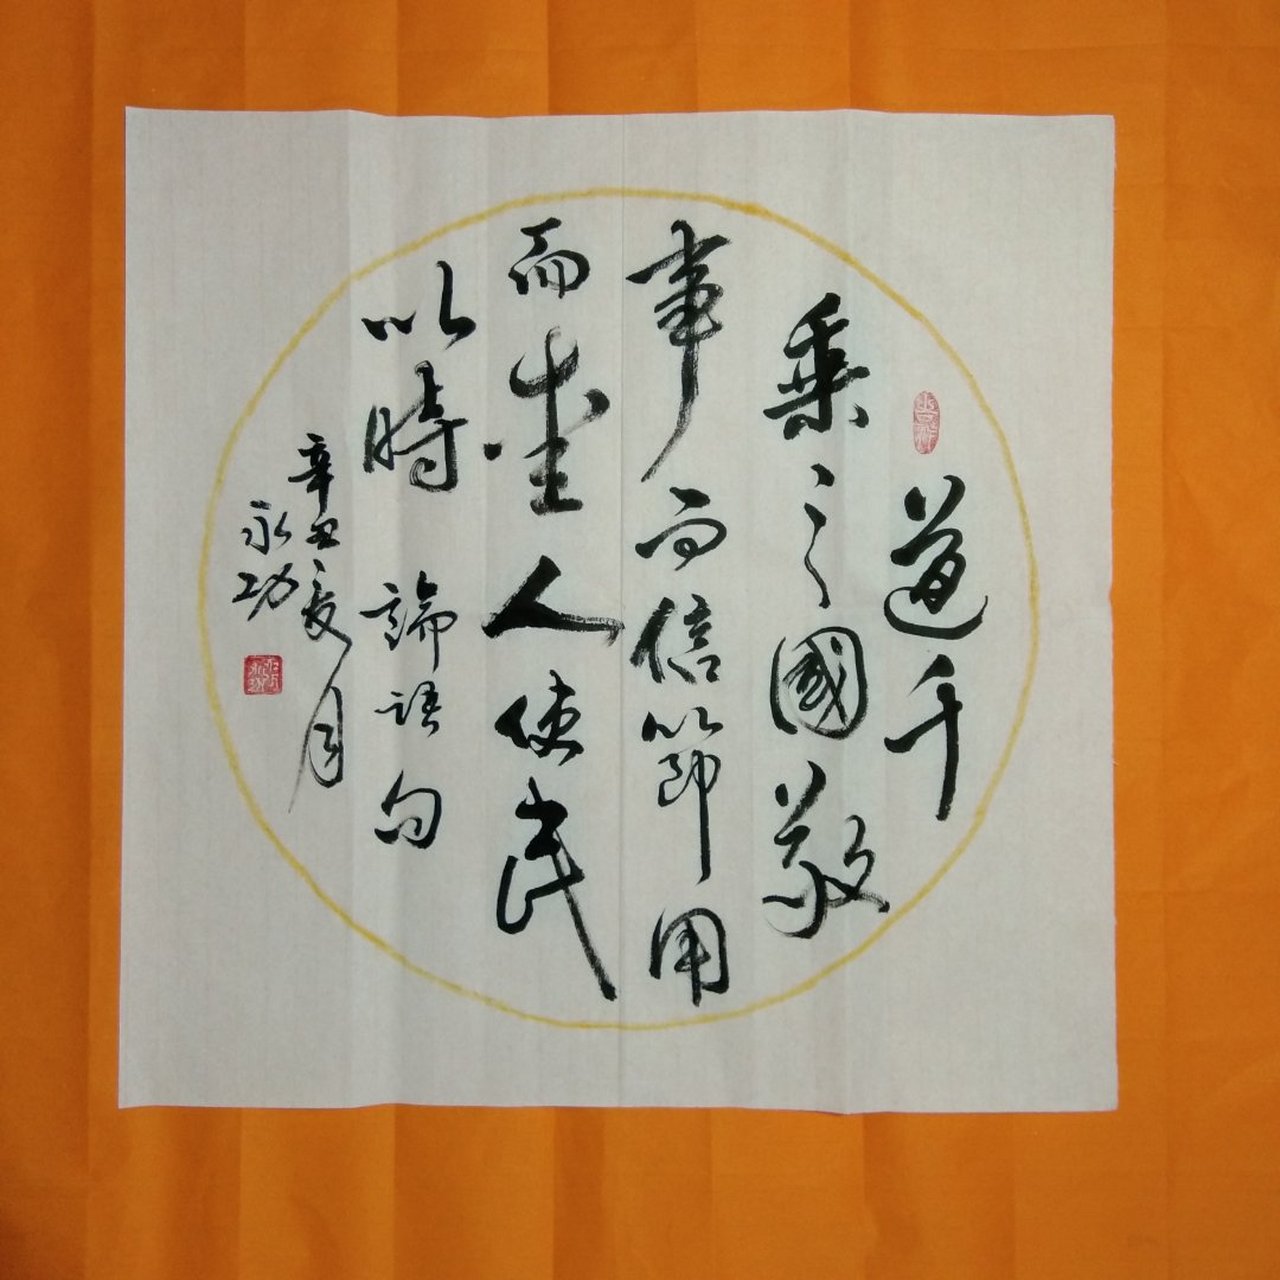 道千
乘之國敬
事而信節用
而愛人使民
以時 論語句
辛丑夏月
永功